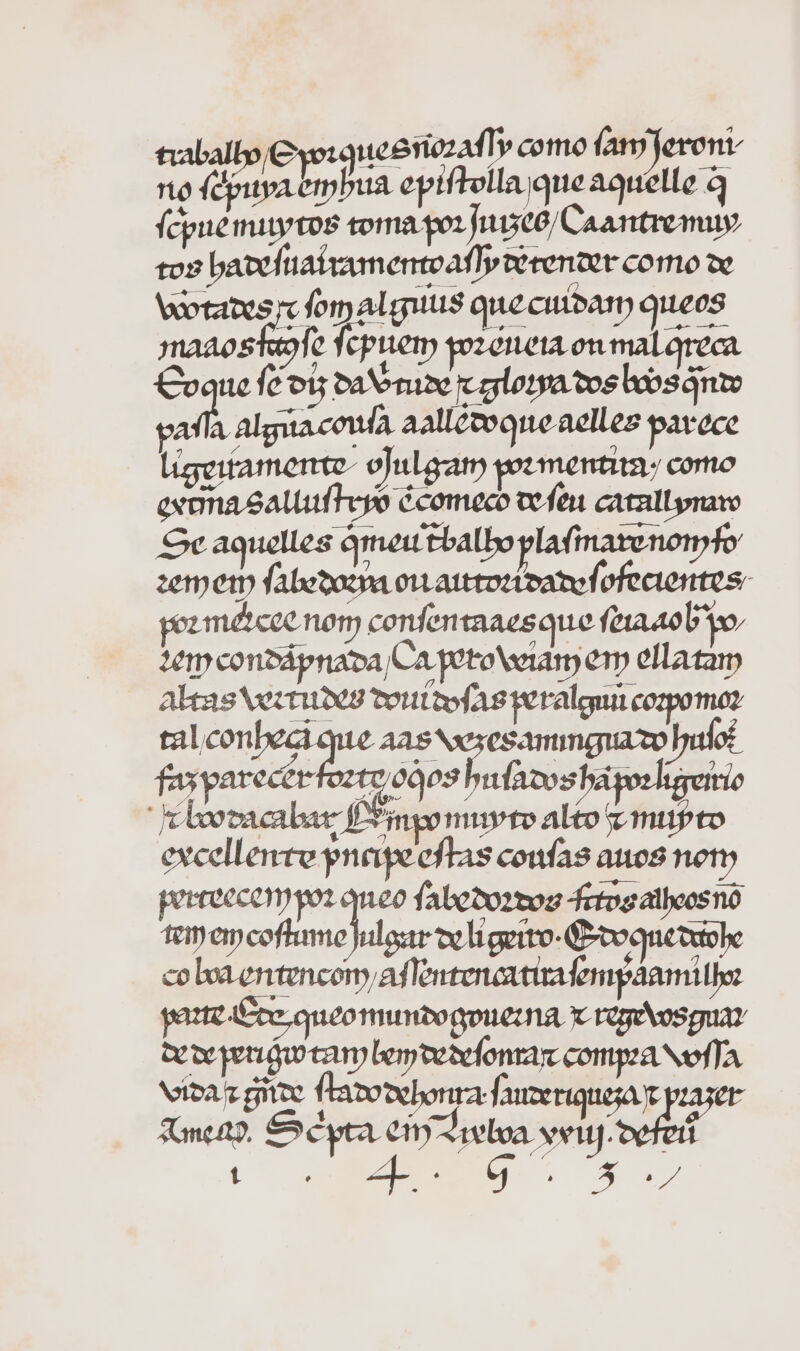 trabalho/E porque señor assy como sam Jeroni-
no scpuya em hũa epistolla, que aquelle q̃
scpue muytos toma por Juizes/Ca antre muy-
tos ha de suaixamento assy de render como de
võtades, ⁊ som alguũs que cuidam que os
maaos
Eo que se diz da v̾tude ⁊ gloria dos boõs qñdo
passa algũa cousa aallẽ do que a elles parece
ligeiramente o Julgam por mentira, como
pom a Sallustryo ẽ começo de seu catallynaro
Se aquelles q̃ meu tbalho plasmarẽ nom fo-
rem em sabedoria ou autoridade sofecientes-
por mercee nom consentaaes que seia aob po-
rem condãpnada/Ca pero veiam em ella tam
altas vertudes douidosas per alguũ corpo mor
tal, conheça que aas vezes a mingua do huso
faz parecer forte, o q̃ os husados hã por ligeirio
⁊ boo dacabar P mpo muyto alto ⁊ muyto
excellente p̃ncipe estas cousas a uos nom
perteecem por que o sabedor dos fctos alheos nõ
tem em costume Julgar de ligeiro. E do que dctohe
co boa entencom, assentencatira sempa a milhor
parte. E Dz, que o mundo gouerna ⁊ rege vos guar
de de perigoo tam bem de desonrar ⁊ compra vossa
vida ⁊ gñde stado de honra. saude riqueza ⁊ prazer
Amen. Scpta em Lixboa xviij. de feũ
1 . 4 . 9 . 5 ./